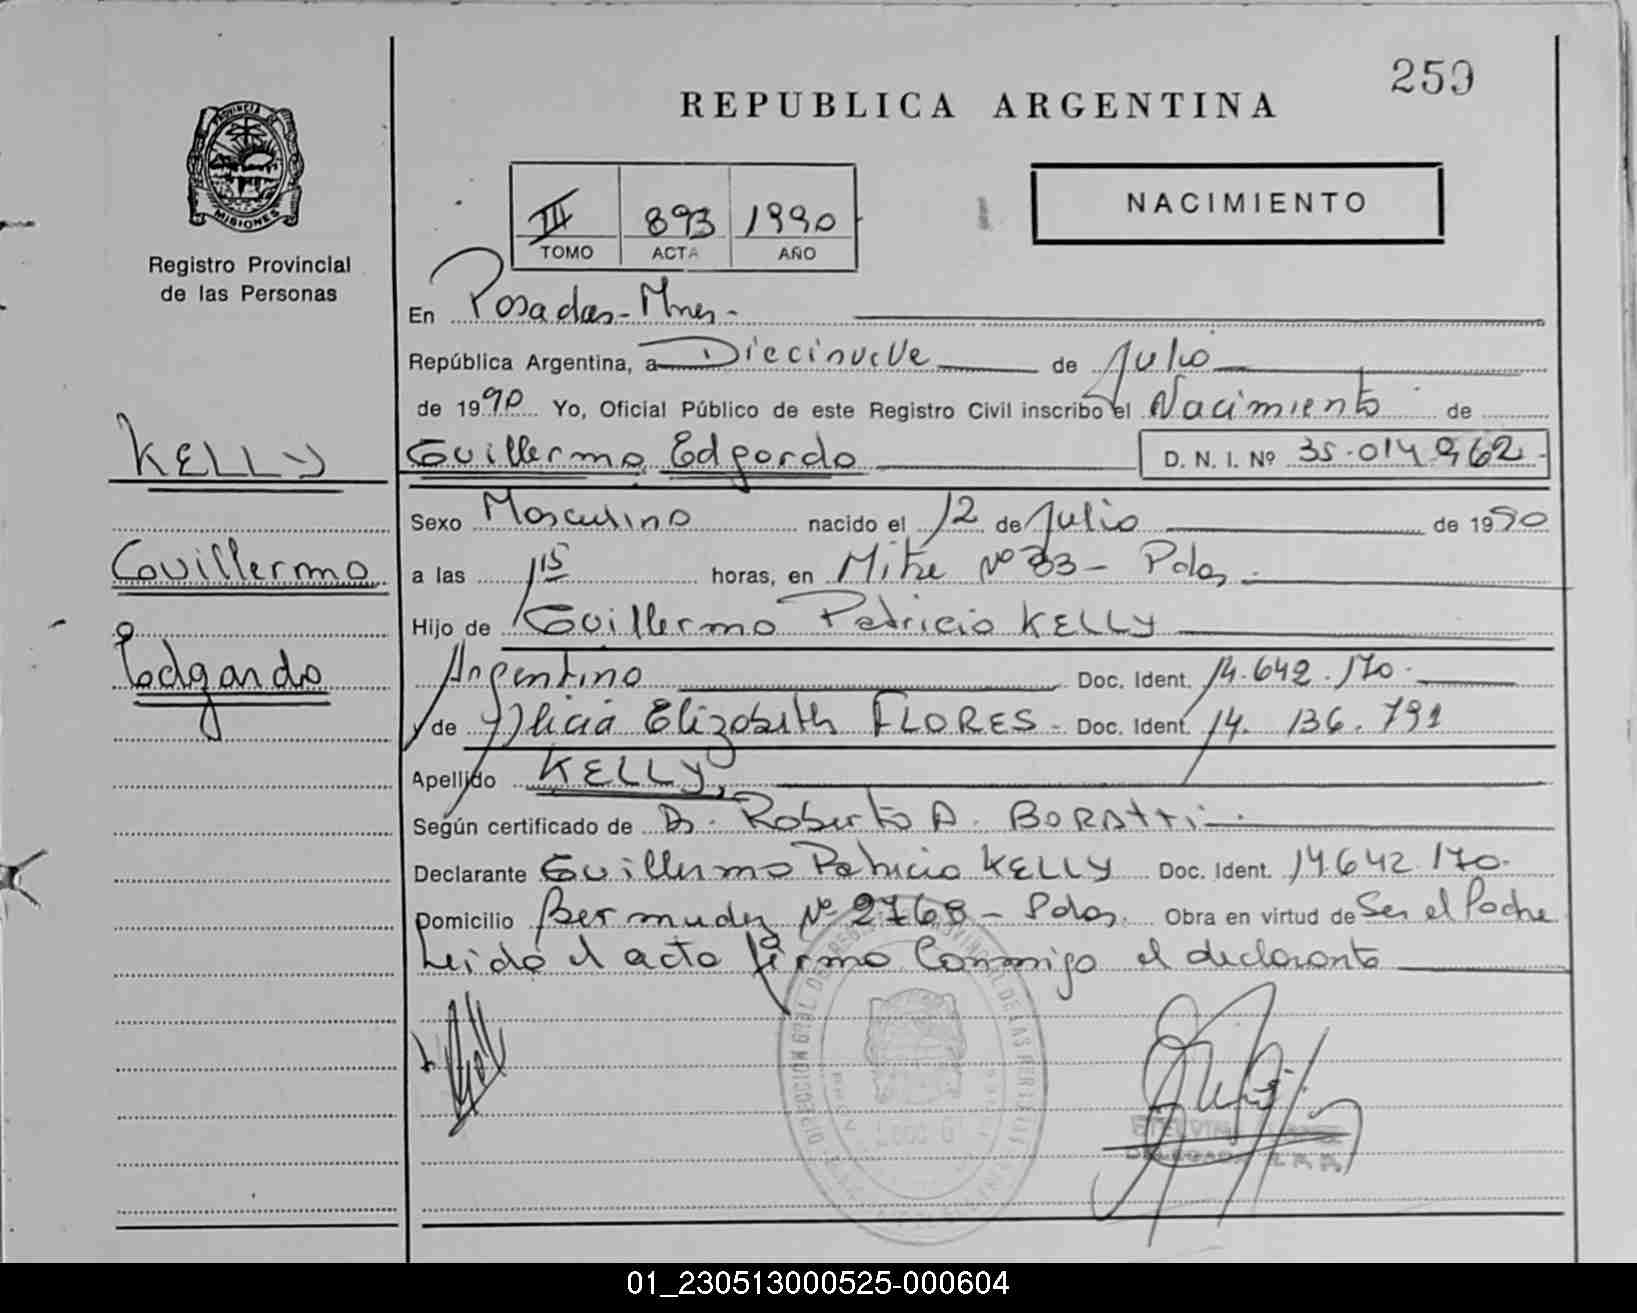 250
REPUBLICA ARGENTINA
PROVINCIA DE
MISIONES
Registro Provincial
de las Personas
III 893 1990
TOMO ACTA AÑO
NACIMIENTO
En Posadas - Mnes -
República Argentina, a Diecinueve de Julio
de 1990 Yo, Oficial Público de este Registro Civil inscribo el Nacimiento de
KELLY
Guillermo Edgardo D. N. I. Nº 35.014.962-
Sexo Masculino nacido el 12 de Julio de 1990
Guillermo
a las 15 horas, en Mitre Nº 33 - Pdas.
Hijo de Guillermo Patricio KELLY
Edgardo
Argentino Doc. Ident. 14.642.170.
y de Alicia Elizabeth FLORES - Doc. Ident. 14.136.791
Apellido KELLY,
Según certificado de Dr. Roberto A. BORATTI
Declarante Guillermo Patricio KELLY Doc. Ident. 14.642.170.
Domicilio Bermudez Nº 2768 - Pdas. Obra en virtud de Ser el Padre
Leido el acta firma Conmigo el declarante
01_230513000525-000604